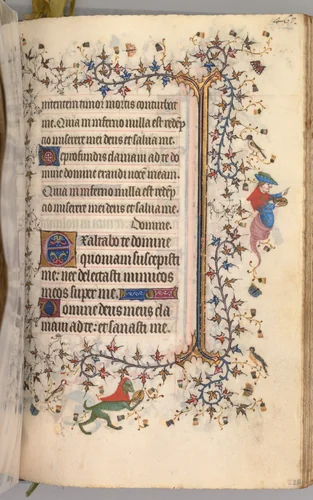 mitentem timor mortis conturbat
me. Quia in inferno nulla est redẽp
no miserere mei deus et salua me.
De profundis clamaui ad te do
mine domine exaudi uocẽ meam.
Quia in inferno nulla est redẽp
no miserere mei deus et salua me.
Domine.
Exaltabo te domine
quoniam suscepisti
me: nec delectasti inimicos
meos super me.
Domine deus meus cla
maui ad te: et sanasti me.